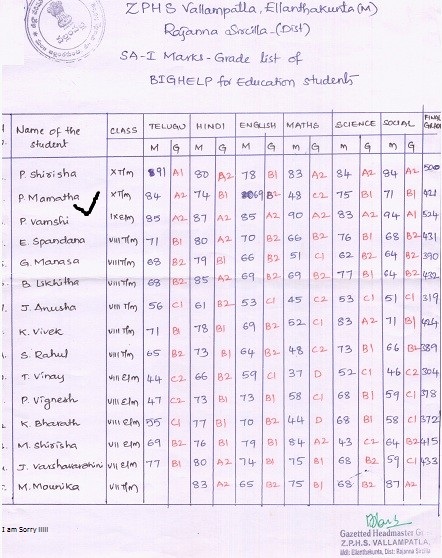 ZPHS Vallampatla, Ellanthakunta(M)
Rajanna Sircilla-(Dist)
SA-I Marks-Grade list of
BIGHELP for Education Students
Name of the student CLASS TELUGU HINDI ENGLISH MATHS SCIENCE SOCIAL FINAL GRAD
M G M G M G M G M G M G
P. Shirisha X T/m 91 A1 80 A2 78 B1 83 A2 84 A2 84 A2 500
P. Mamatha X T/m 84 A2 74 B1 69 B2 48 C2 75 B1 71 B1 421
P. Vamshi IX E/m 85 A2 87 A2 85 A2 90 A2 83 A2 94 A1 524
E. Spandana VIII T/m 71 B1 80 A2 70 B2 66 B2 76 B1 68 B2 431
G. Manasa VIII T/m 68 B2 79 B1 66 B2 51 C1 62 B2 64 B2 390
B. Likhitha VIII T/m 68 B2 85 A2 69 B2 69 B2 77 B1 64 B2 432
J. Anusha VIII T/m 56 C1 61 B2 53 C1 45 C2 53 C1 51 C1 319
K. Vivek VII T/m 71 B1 78 B1 69 B2 52 C1 83 A2 71 B1 424
S. Rahul VII T/m 65 B2 73 B1 64 B2 48 C2 73 B1 66 B2 389
T. Vinay VII E/m 44 C2 66 B2 59 C1 37 D 52 C1 46 C2 304
P. Vignesh VII E/m 47 C2 73 B1 73 B1 58 C1 68 B1 59 C1 378
K. Bharath VII E/m 55 C1 77 B1 70 B2 44 D 68 B1 58 C1 372
M. Shirisha VII E/m 69 B2 76 B1 79 B1 84 A2 43 C2 64 B2 415
J. Varshavardhini VII E/m 77 B1 80 A2 74 B1 75 B1 68 B2 59 C1 433
M. Mounika VII T/m 83 A2 65 B2 75 B1 68 B2 87 A2
I am Sorry !!!!!
Gazetted Headmaster
Z.P.H.S. VALLAMPATLA,
Mdl: Ellanthakunta, Dist: Rajanna Sircilla